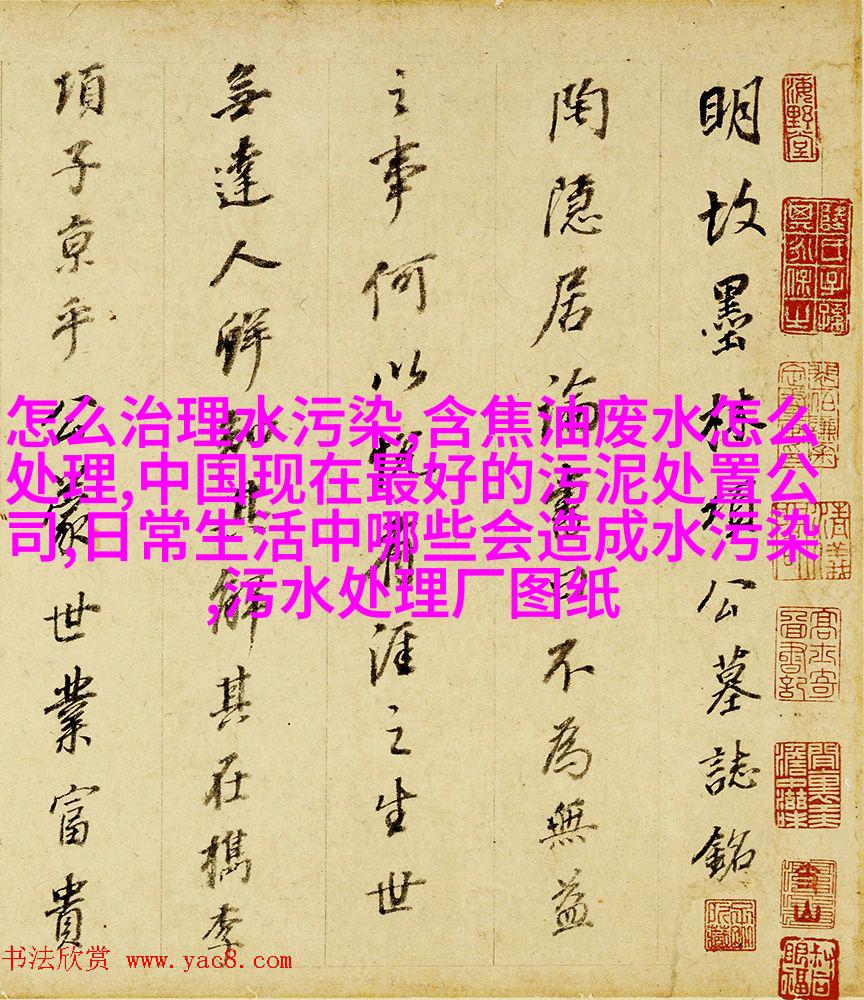 明故墨林項公墓誌銘
陶隱居論書曰不為無益
之事何以悅有涯之生世
無達人鮮知其解其在檇李
項子京乎公蒙世業富貴
怎么治理水污染,含焦油废水怎么
处理,中国现在最好的污泥处置公
司,日常生活中哪些会造成水污染
,污水处理厂图纸
海野堂
书法欣赏 www.yac8.com